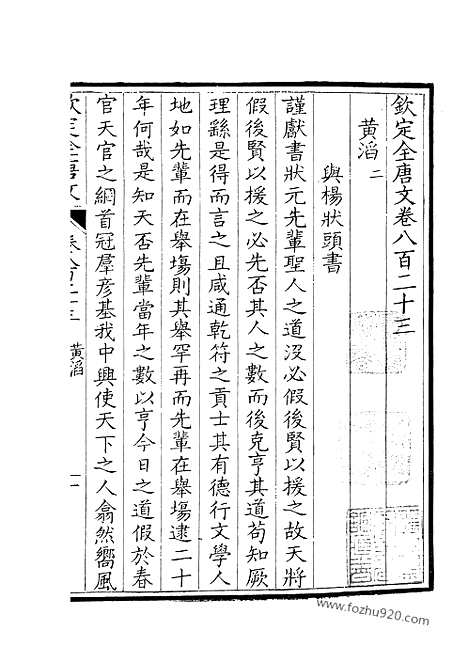 欽定全唐文卷八百二十三
黃滔 二
與楊狀頭書
謹獻書狀元先輩聖人之道沒必假後賢以援之故天將
假後賢以援之必先否其人之數而後克亨其道苟知厥
理繇是得而言之且咸通乾符之貢士其有德行文學人
地如先輩而在舉塲則其舉罕再而先輩在舉塲逮二十
年何哉是知天否先輩當年之數以亨今日之道假於春
官天官之網首冠羣彥基我中興使天下之人翕然嚮風
欽定全唐文
卷八百二十三 黃滔
一
www.fozhu920.com